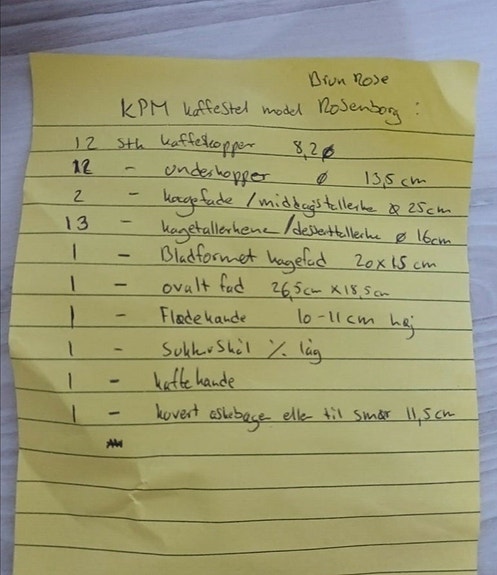 Brun Rose
KPM kaffestel model Rosenborg :
12 stk kaffekopper 8,2 ø
12 - underkopper ø 13,5 cm
2 - kagefade / middagstallerke ø 25 cm
13 - kagetallerkene / desserttallerke ø 16 cm
1 - Bladformet kagefad 20 x 15 cm
1 - ovalt fad 26,5 cm x 18,5 cm
1 - Flødekande 10-11 cm høj
1 - Sukkerskål % låg
1 - kaffekande
1 - kuvert askebæger eller til smør 11,5 cm